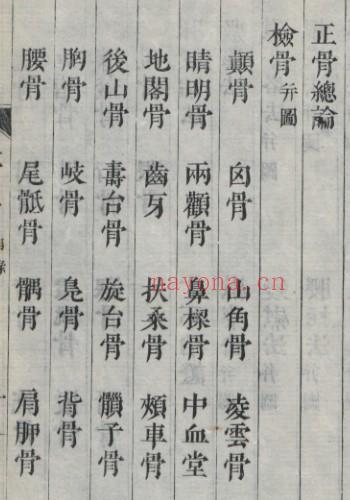 正骨總論
檢骨 幷圖
顛骨 囟骨 山角骨 凌雲骨
睛明骨 兩顴骨 鼻樑骨 中血堂
地閣骨 齒牙 扶桑骨 頰車骨
後山骨 壽台骨 旋台骨 顀子骨
胸骨 岐骨 凫骨 背骨
腰骨 尾骶骨 髃骨 肩胛骨
nayona.cn